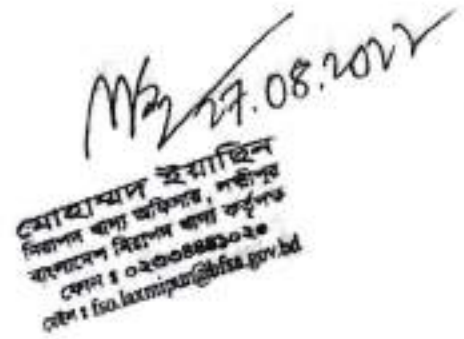 27.08.2022
মোহাম্মদ ইয়াছিন
নিরাপদ খাদ্য অফিসার, লক্ষ্মীপুর
বাংলাদেশ নিরাপদ খাদ্য কর্তৃপক্ষ
ফোন :
মেইল : fso.laxmipur@bfsa.gov.bd